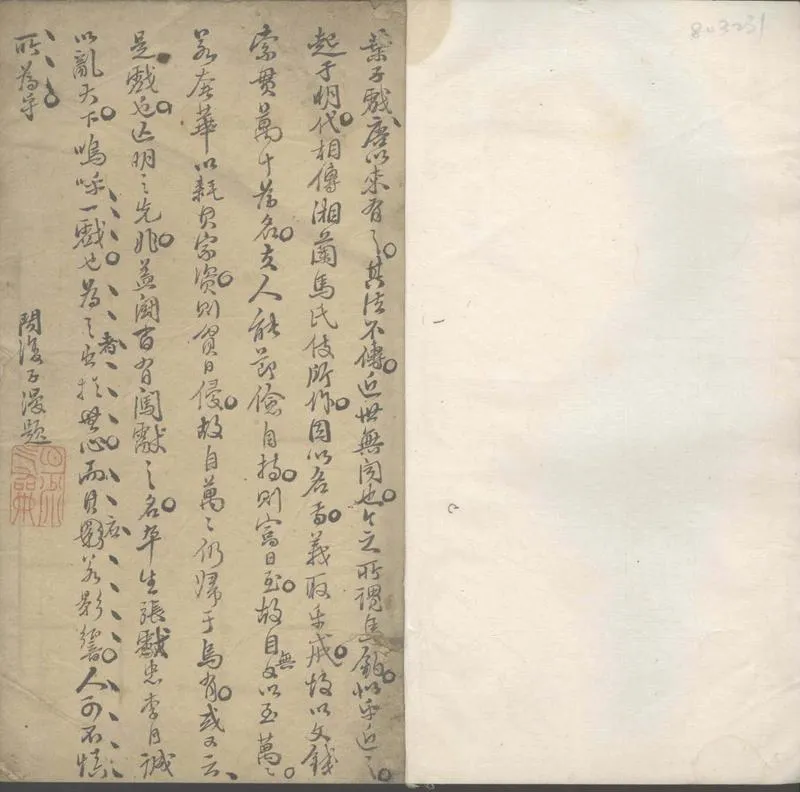 葉子戲唐以來有之其法不傳近世無闻也今之所謂馬釣似乎近之
起于明代相傳湘蘭馬氏伎所作因以名焉義取乎戒故以文錢
索貫萬十為名夫人能節儉自持則富日至故自無文以至萬萬
若奢華以耗其家資則貧日侵故自萬萬仍歸于烏有或又云
是戲也亡明之先兆蓋闖百有闖獻之名卒生張獻忠李自誠
以亂天下嗚呼一戲也為之者出於無心而其應若影響人可不慎
所為乎
子漫題
803231